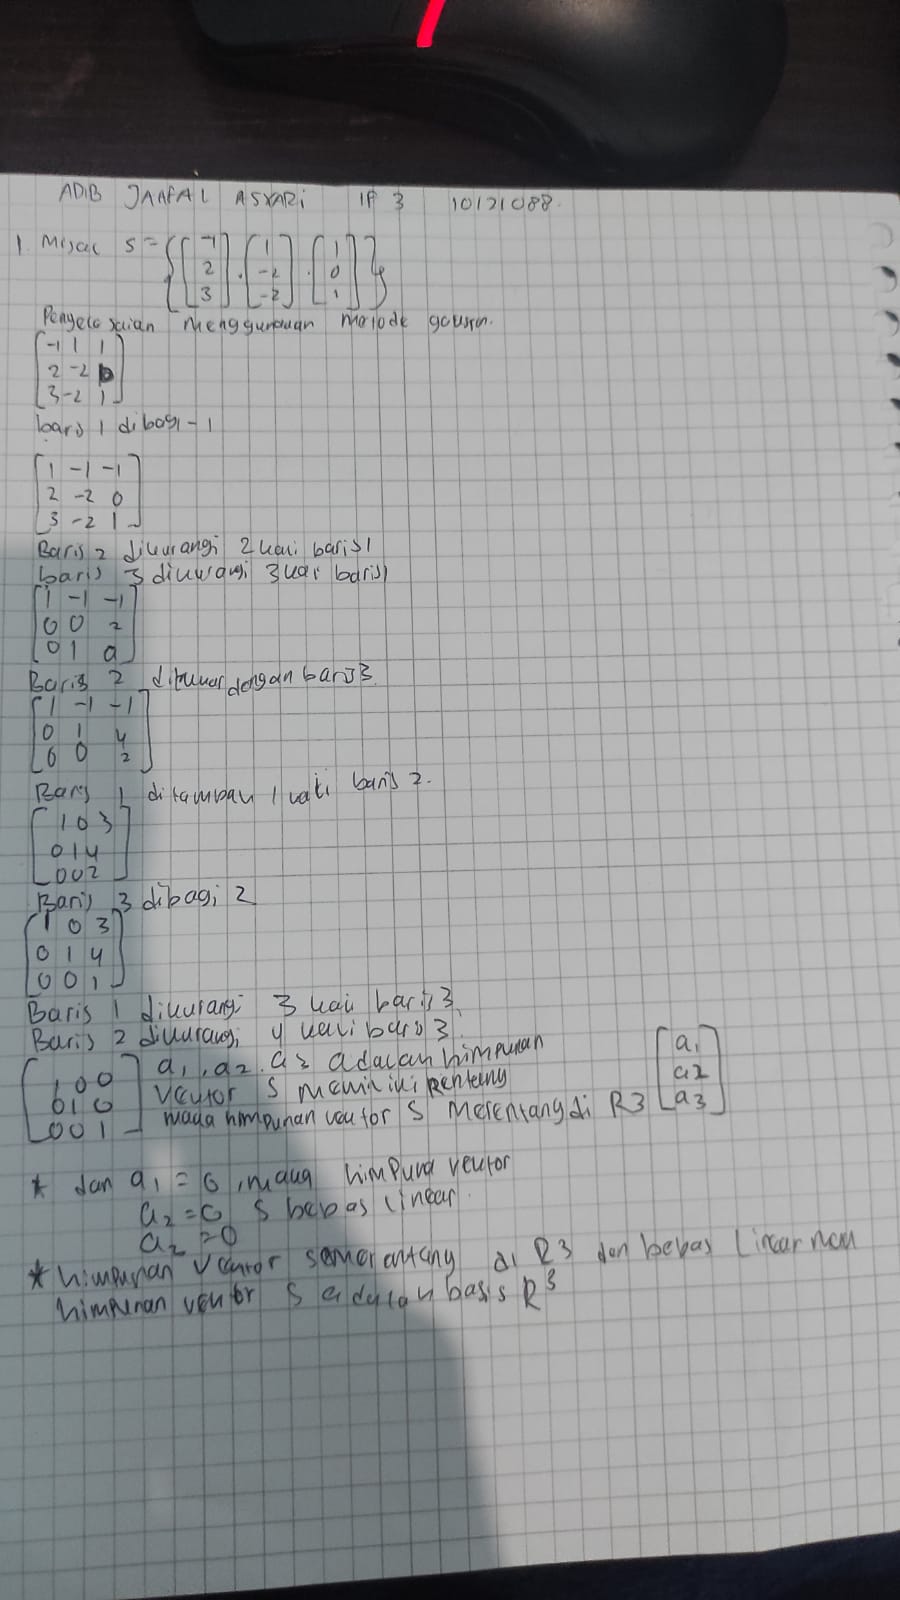 ADIB JAAFAL ASYARI IF 3 10121088
1. Misal S = {[-1 2 3] . [1 -2 -2] . [1 0 1]}
Penyelesaian menggunakan metode
[-1 1 1
2 -2 0
3 -2 1]
baris 1 dibagi -1
[1 -1 -1
2 -2 0
3 -2 1]
Baris 2 dikurangi 2 kali baris 1
baris 3 dikurangi 3 kali baris 1
[1 -1 -1
0 0 2
0 1 4]
Baris 2 ditukar dengan baris 3
[1 -1 -1
0 1 4
0 0 2]
Baris 1 ditambah 1 kali baris 2.
[1 0 3
0 1 4
0 0 2]
Baris 3 dibagi 2
[1 0 3
0 1 4
0 0 1]
Baris 1 dikurangi 3 kali baris 3
Baris 2 dikurangi 4 kali baris 3
[1 0 0
0 1 0
0 0 1]
a1, a2, a3 adalah himpunan
vektor S memiliki
maka himpunan vektor S Merentang di R3 [a1 a2 a3]
* dan a1 = 0, maka himpuna vektor
a2 = 0 S bebas linear.
a2 = 0
* himpunan vektor di R3 dan bebas Linear
himpunan vektor S adalah basis R³